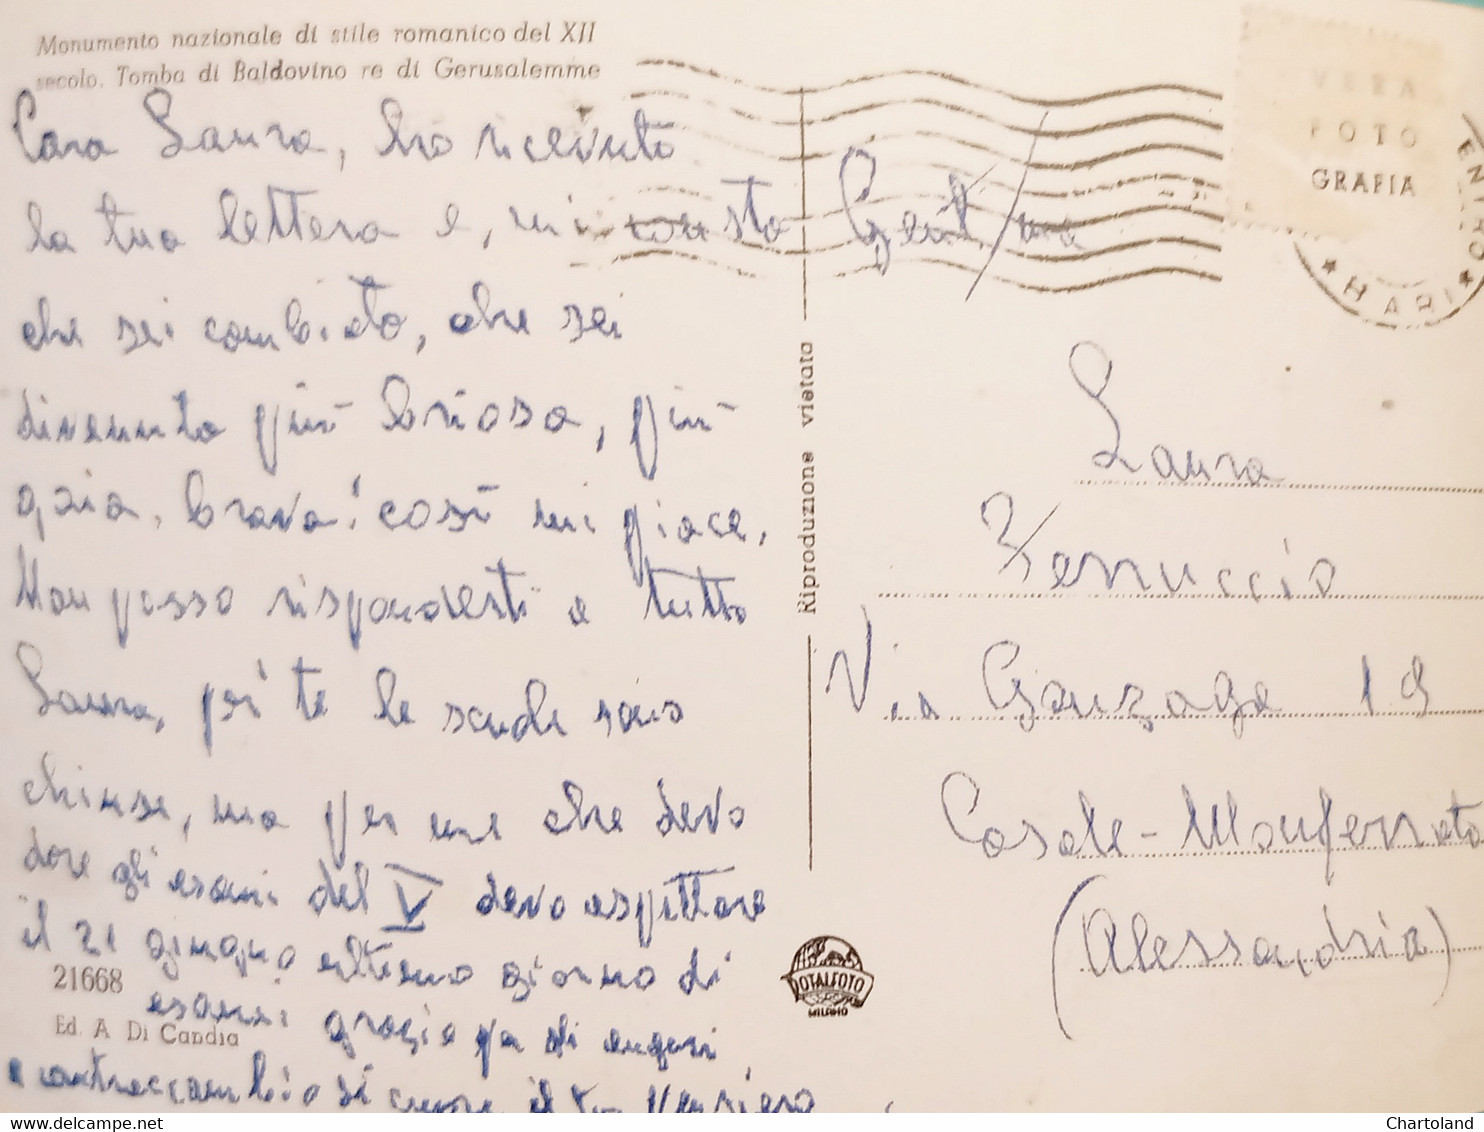 Monumento nazionale di stile romanico del XII
secolo. Tomba di Baldovino re di Gerusalemme
Cara Laura, ho ricevuto
la tua lettera e, mi sta
che sei cambiato, che sei
divenuta più briosa, più
gaia, brava! così mi piace.
Non posso risponderti a tutto
Laura, per te le scuole sono
chiuse, ma per me che devo
dare gli esami del V devo aspettare
il 21 giugno ultimo giorno di
esami grazie per gli auguri
e contraccambio di cuore il tuo
21668
Ed. A Di Candia
Riproduzione vietata
TOTALFOTO
MILANO
VERA
FOTO
GRAFIA
BARI
Gent/ma
Laura
Ferruccio
Via Gonzaga 19
Casale-Monferrato
(Alessandria)
Chartoland